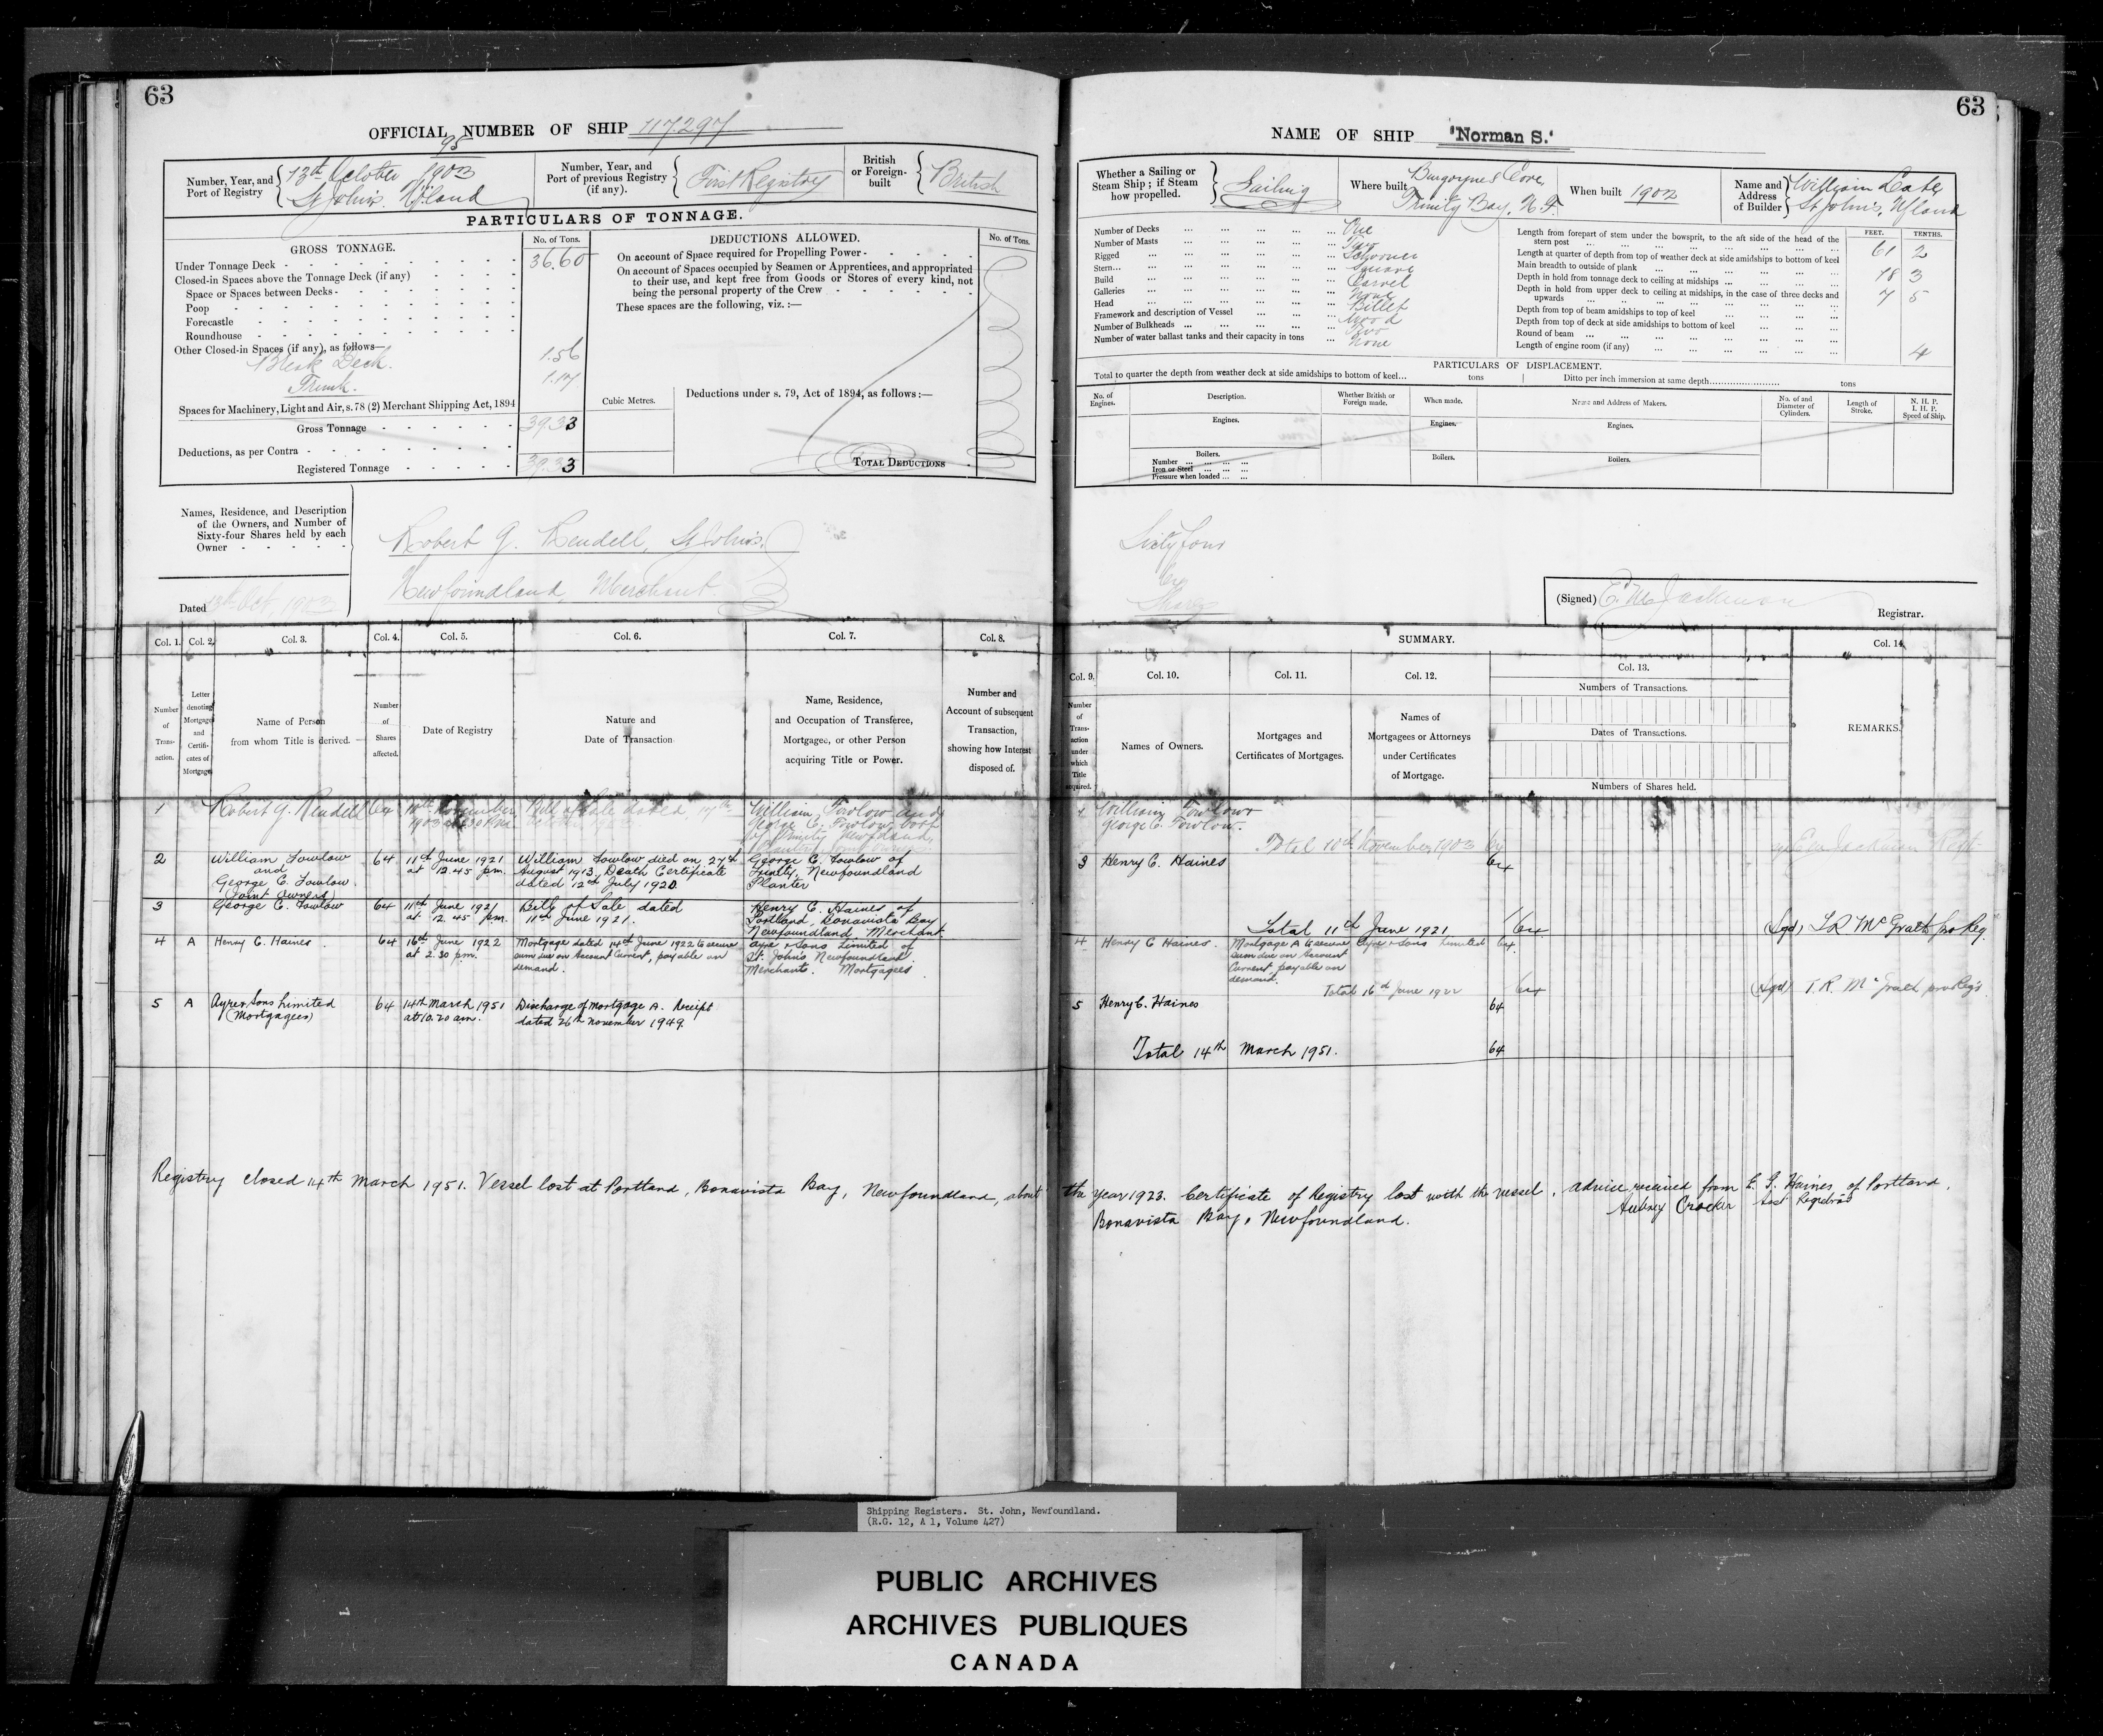 63
OFFICIAL NUMBER OF SHIP 117297
95
Number, Year, and Port of Registry
13th October 1903
St John's. Nfland
Number, Year, and Port of previous Registry (if any).
First Registry
British or Foreign-built
British
PARTICULARS OF TONNAGE.
GROSS TONNAGE.
No. of Tons.
Under Tonnage Deck 36.60
Closed-in Spaces above the Tonnage Deck (if any)
Space or Spaces between Decks
Poop
Forecastle
Roundhouse
Other Closed-in Spaces (if any), as follows—
Deck. 1.56
Trunk. 1.17
Spaces for Machinery, Light and Air, s. 78 (2) Merchant Shipping Act, 1894
Gross Tonnage 39.33
Deductions, as per Contra
Registered Tonnage 39.33
Cubic Metres.
DEDUCTIONS ALLOWED.
No. of Tons.
On account of Space required for Propelling Power
On account of Spaces occupied by Seamen or Apprentices, and appropriated
to their use, and kept free from Goods or Stores of every kind, not
being the personal property of the Crew
These spaces are the following, viz. :—
Deductions under s. 79, Act of 1894, as follows :—
TOTAL DEDUCTIONS
Names, Residence, and Description
of the Owners, and Number of
Sixty-four Shares held by each
Owner
Robert G. Rendell, St John's,
Newfoundland, Merchant.
Dated 13th Oct. 1903
Col. 1. Col. 2. Col. 3. Col. 4. Col. 5. Col. 6. Col. 7. Col. 8.
Number of Trans-action.
Letter denoting Mortgages and Certifi-cates of Mortgage
Name of Person from whom Title is derived.
Number of Shares affected.
Date of Registry
Nature and Date of Transaction
Name, Residence, and Occupation of Transferee, Mortgagee, or other Person acquiring Title or Power.
Number and Account of subsequent Transaction, showing how Interest disposed of.
1 Robert G. Rendell 64 10th November 1903 at 2.30 P.M. Bill of Sale dated 17th October 1903 William Fowlow and George C. Fowlow both of Trinity Newfoundland, Planters, Joint owners.
2 William Fowlow and George C. Fowlow. (Joint Owners) 64 11th June 1921 at 12.45 p.m. William Fowlow died on 27th August 1913, Death Certificate dated 12th July 1920. George C. Fowlow of Trinity, Newfoundland Planter
3 George C. Fowlow 64 11th June 1921 at 12.45 p.m. Bill of Sale dated 11th June 1921. Henry C. Haines of Portland Bonavista Bay Newfoundland Merchant.
4 A Henry C. Haines. 64 16th June 1922 at 2.30 p.m. Mortgage dated 14th June 1922 to secure sum due on Account Current, payable on demand. Ayre & Sons Limited of St. Johns Newfoundland. Merchants. Mortgagees
5 A Ayre & Sons Limited (Mortgagees) 64 14th March 1951 at 10.20 a.m. Discharge of Mortgage A. Receipt dated 26th November 1949.
Registry closed 14th March 1951. Vessel lost at Portland, Bonavista Bay, Newfoundland, about
63
NAME OF SHIP "Norman S."
Whether a Sailing or Steam Ship; if Steam how propelled.
Sailing
Where built Burgoynes Cove, Trinity Bay, N.F.
When built 1903
Name and Address of Builder
William
St John's, Nfland
Number of Decks One
Number of Masts Two
Rigged Schooner
Stern Square
Build Carvel
Galleries None
Head Billet
Framework and description of Vessel Wood
Number of Bulkheads Two
Number of water ballast tanks and their capacity in tons None
FEET. TENTHS.
Length from forepart of stem under the bowsprit, to the aft side of the head of the stern post 61 2
Length at quarter of depth from top of weather deck at side amidships to bottom of keel
Main breadth to outside of plank 18 3
Depth in hold from tonnage deck to ceiling at midships 7 5
Depth in hold from upper deck to ceiling at midships, in the case of three decks and upwards
Depth from top of beam amidships to top of keel
Depth from top of deck at side amidships to bottom of keel
Round of beam 4
Length of engine room (if any)
PARTICULARS OF DISPLACEMENT.
Total to quarter the depth from weather deck at side amidships to bottom of keel... tons
Ditto per inch immersion at same depth tons
No. of Engines.
Description.
Whether British or Foreign made.
When made.
Name and Address of Makers.
No. of and Diameter of Cylinders.
Length of Stroke.
N. H. P. I. H. P. Speed of Ship.
Engines. Engines. Engines.
Boilers. Boilers. Boilers.
Number
Iron or Steel
Pressure when loaded
Sixty four
64
Shares
(Signed)
Registrar.
SUMMARY.
Col. 9. Col. 10. Col. 11. Col. 12. Col. 13. Col. 14.
Number of Trans-action under which Title acquired.
Names of Owners.
Mortgages and Certificates of Mortgages.
Names of Mortgagees or Attorneys under Certificates of Mortgage.
Numbers of Transactions.
Dates of Transactions.
Numbers of Shares held.
REMARKS.
1 William Fowlow
George C. Fowlow.
Total 10th November 1903 64
3 Henry C. Haines 64
Total 11th June 1921 64 (Sgd) T R McGrath pro Reg.
4 Henry C Haines. Mortgage A to secure sum due on Account Current payable on demand. Ayre & Sons Limited 64
Total 16th June 1922 64 (Sgd) T. R. McGrath pro Reg's
5 Henry C. Haines 64
Total 14th March 1951. 64
the year 1923. Certificate of Registry lost with the vessel. Advice received from E. G. Haines of Portland,
Bonavista Bay, Newfoundland.
Aubrey Crocker Asst Registrar
Shipping Registers. St. John, Newfoundland.
(R.G. 12, A 1, Volume 427)
PUBLIC ARCHIVES
ARCHIVES PUBLIQUES
CANADA